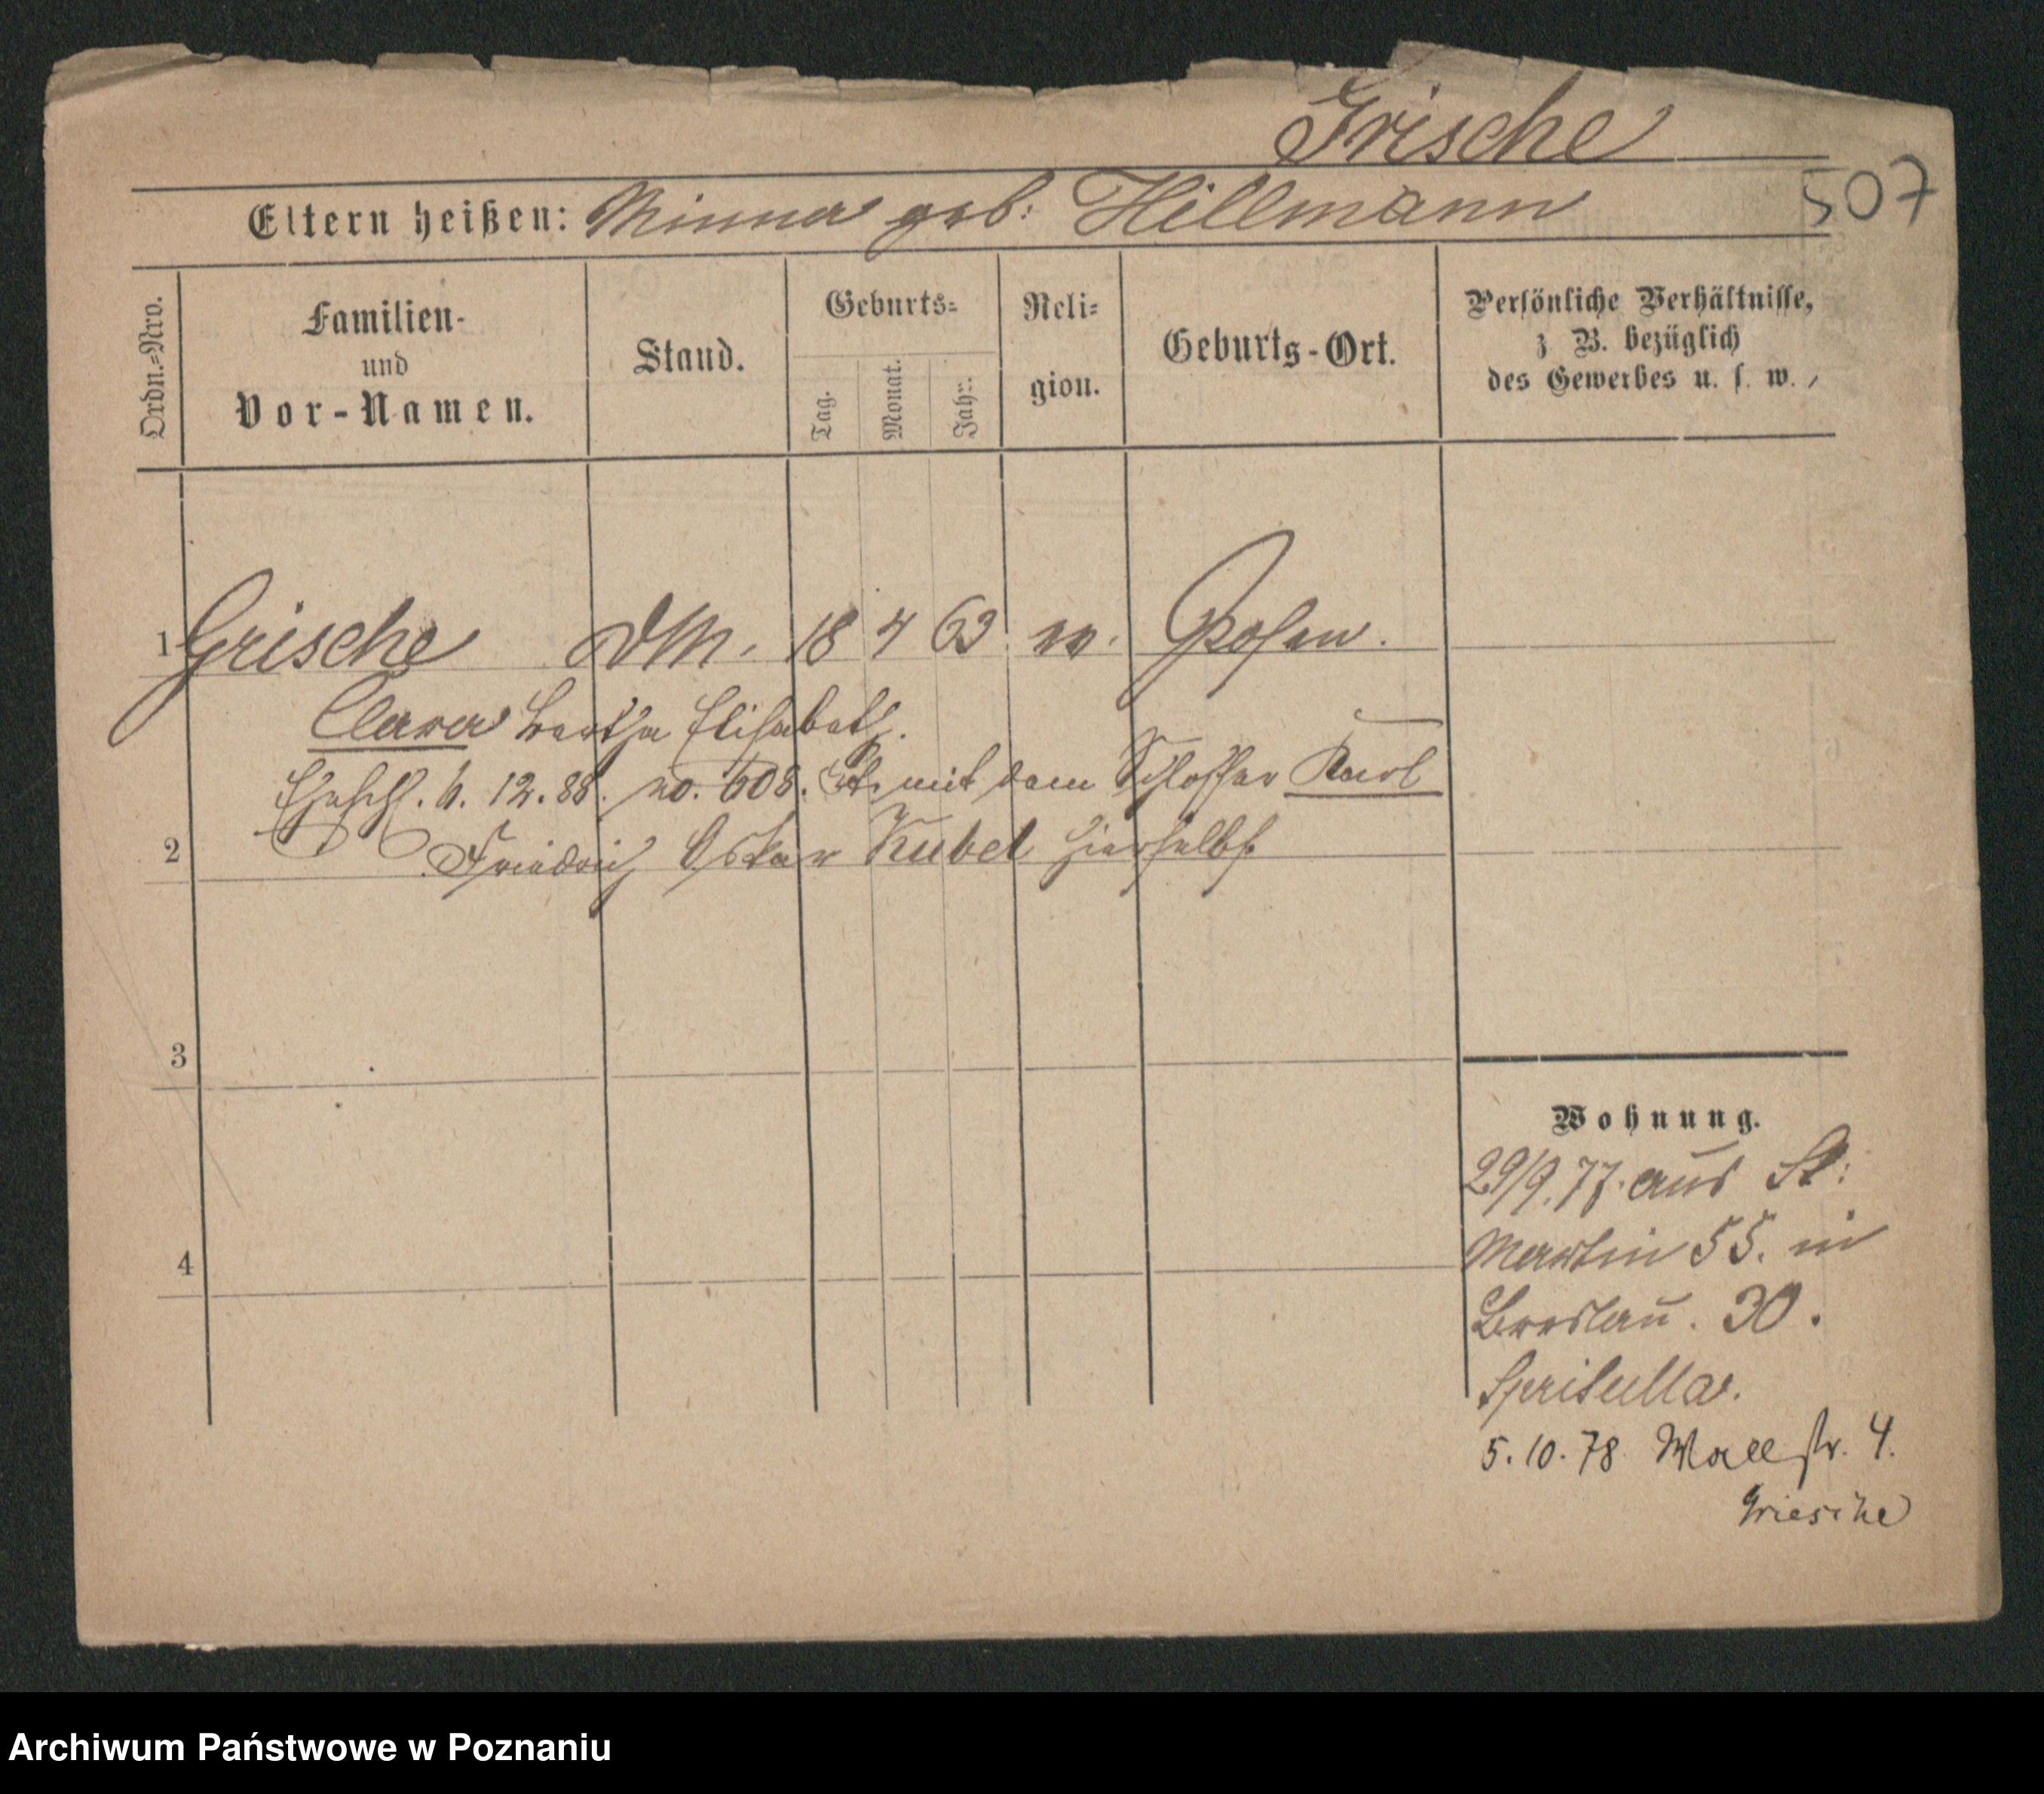 Grische
507
Eltern heißen: Minna geb: Hillmann
Ordn.=Nro.
Familien- und Vor-Namen.
Stand.
Geburts=
Tag.
Monat.
Jahr.
Reli=
gion.
Geburts-Ort.
Persönliche Verhältnisse,
z B. bezüglich
des Gewerbes u. s. w.
1 Grische 18 4 63 Posen.
Clara Bertha Elisabeth.
Ehesch. 6. 12. 88. no. 608. mit dem Schlosser Karl
2 Friedrich Oskar Kubel hierselbst
3
4
Wohnung.
29/9. 77. aus St:
Martin 55. in
Breslau. 30.
5. 10. 78 Wallstr. 4.
Griesche
Archiwum Państwowe w Poznaniu